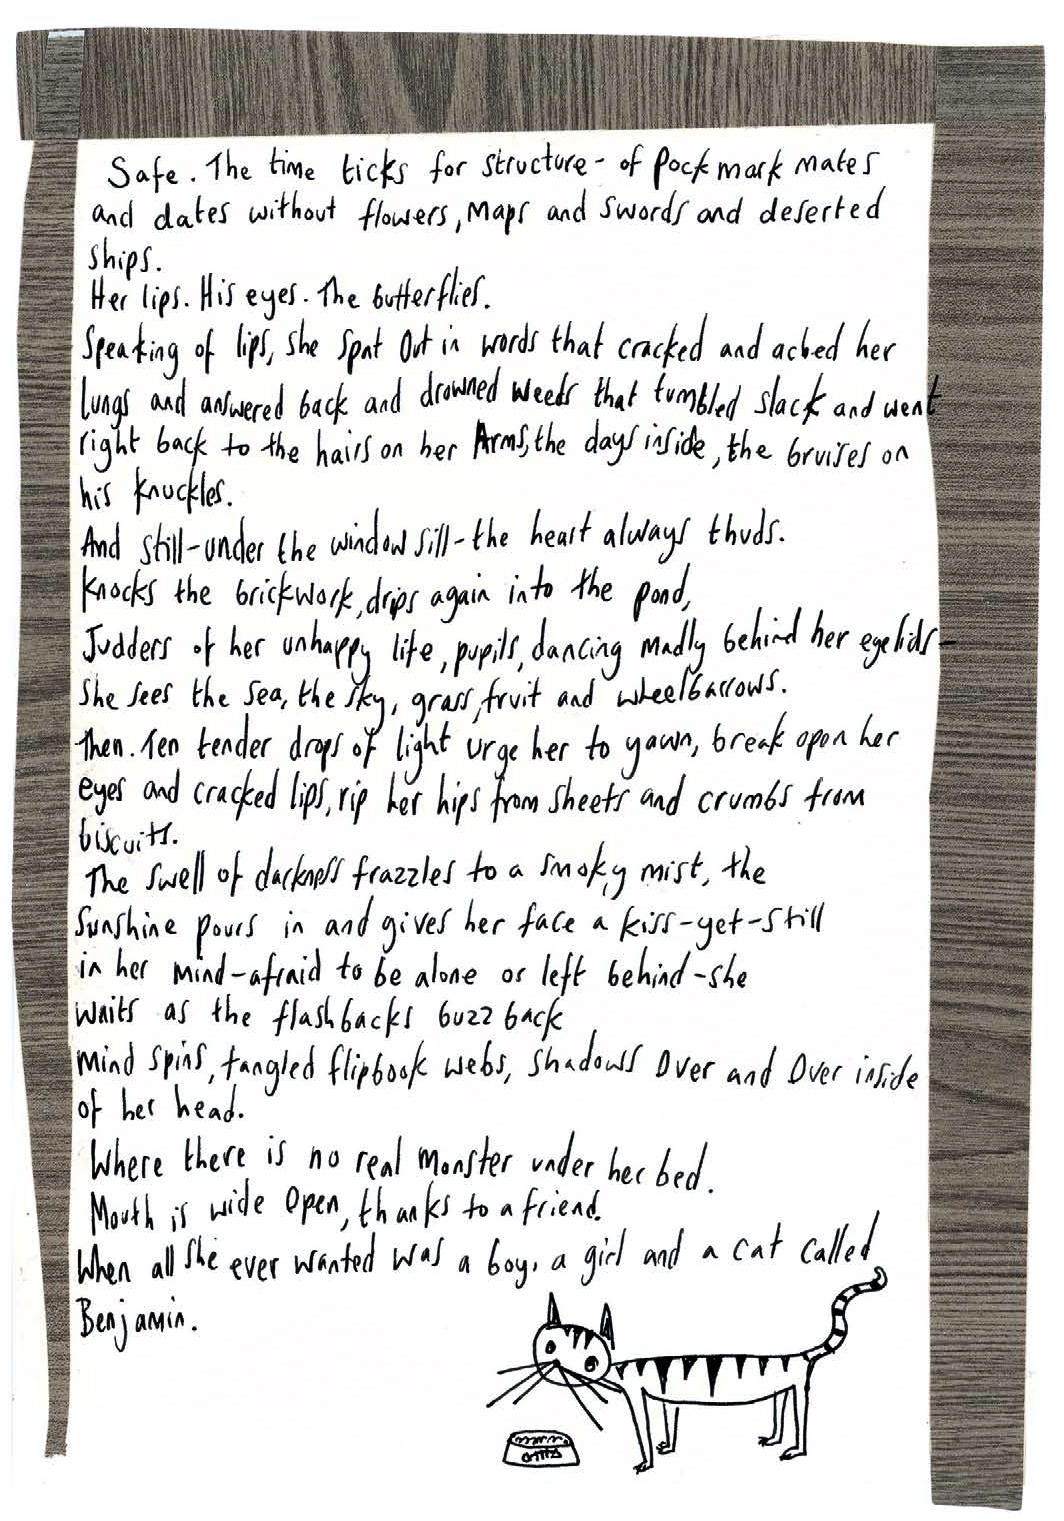 Safe. The time ticks for structure - of pockmark mates
and dates without flowers, Maps and swords and deserted
ships.
Her lips. His eyes. The butterflies.
Speaking of lips, she spat Out in words that cracked and ached her
lungs and answered back and drowned weeds that tumbled slack and went
right back to the hairs on her Arms, the days inside, the bruises on
his knuckles.
And still - under the window sill - the heart always thuds.
Knocks the brickwork, drips again into the pond,
Judders of her unhappy life, pupils, dancing Madly behind her eyelids -
She sees the sea, the sky, grass, fruit and wheelbarrows.
Then. Ten tender drops of light urge her to yawn, break open her
eyes and cracked lips, rip her hips from sheets and crumbs from
biscuits.
The swell of darkness frazzles to a smoky mist, the
sunshine pours in and gives her face a kiss - yet - still
in her mind - afraid to be alone or left behind - she
waits as the flashbacks buzz back
Mind spins, tangled flipbook webs, shadows Over and Over inside
of her head.
Where there is no real Monster under her bed.
Mouth is wide Open, thanks to a friend.
When all she ever wanted was a boy, a girl and a cat called
Benjamin.